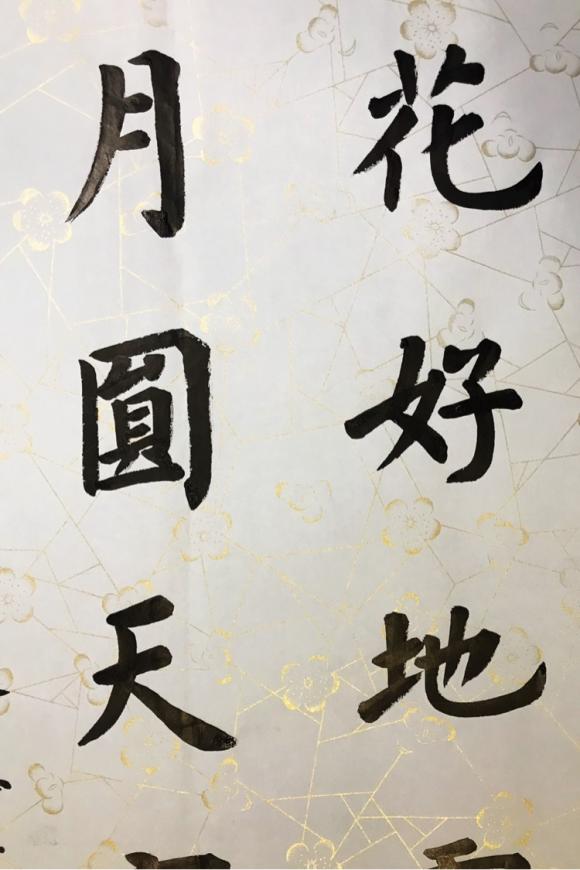 花好地
月圓天